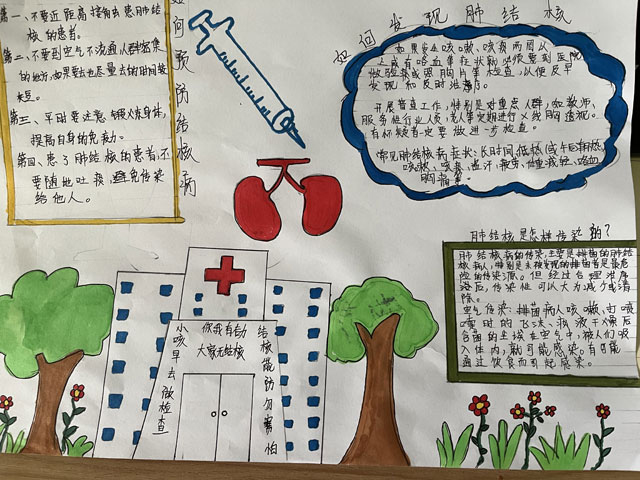 如何预防结核病
第一、不要近距离接触去患肺结
核的患者。
第二、不要到空气不流通人群密集
的地方,如果要去也尽量去的时间
来豆。
第三、平时要注意锻炼身体,
提高自身的免疫力。
第四、患了肺结核的患者,不
要随地吐痰,避免传染
给他人。
如何发现肺结核
如果出现咳嗽、咳痰两周以
上或有咯血等症状,则必需要到医院
做验痰或照胸片等检查,以便及早
发现和及时治疗。
开展普查工作,特别是对重点人群,如教师、
服务性行业人员,老人等定期进行X线胸透视。
有怀疑者一定要做进一步检查。
常见肺结核病症状:长时间低热(或午后潮热)
咳嗽、咳痰、盗汗、疲劳、体重减轻、咯血
胸痛等。
肺结核是怎样传染的?
肺结核病的传染,主要是排菌的肺结
核病人,特别是未被发现的排菌者是最危
险的传染源。但经过合理治疗
后,传染性可以大为减少或消
除。
空气传染:排菌病人咳嗽、打喷
嚏时的飞沫、痰液干燥后
含菌的尘埃在空气中,被人们吸
入体内,就可能感染。有可能
通过饮食而引起感染。
你我自动
大家无结核
小咳早去做检查
结核能防勿害怕